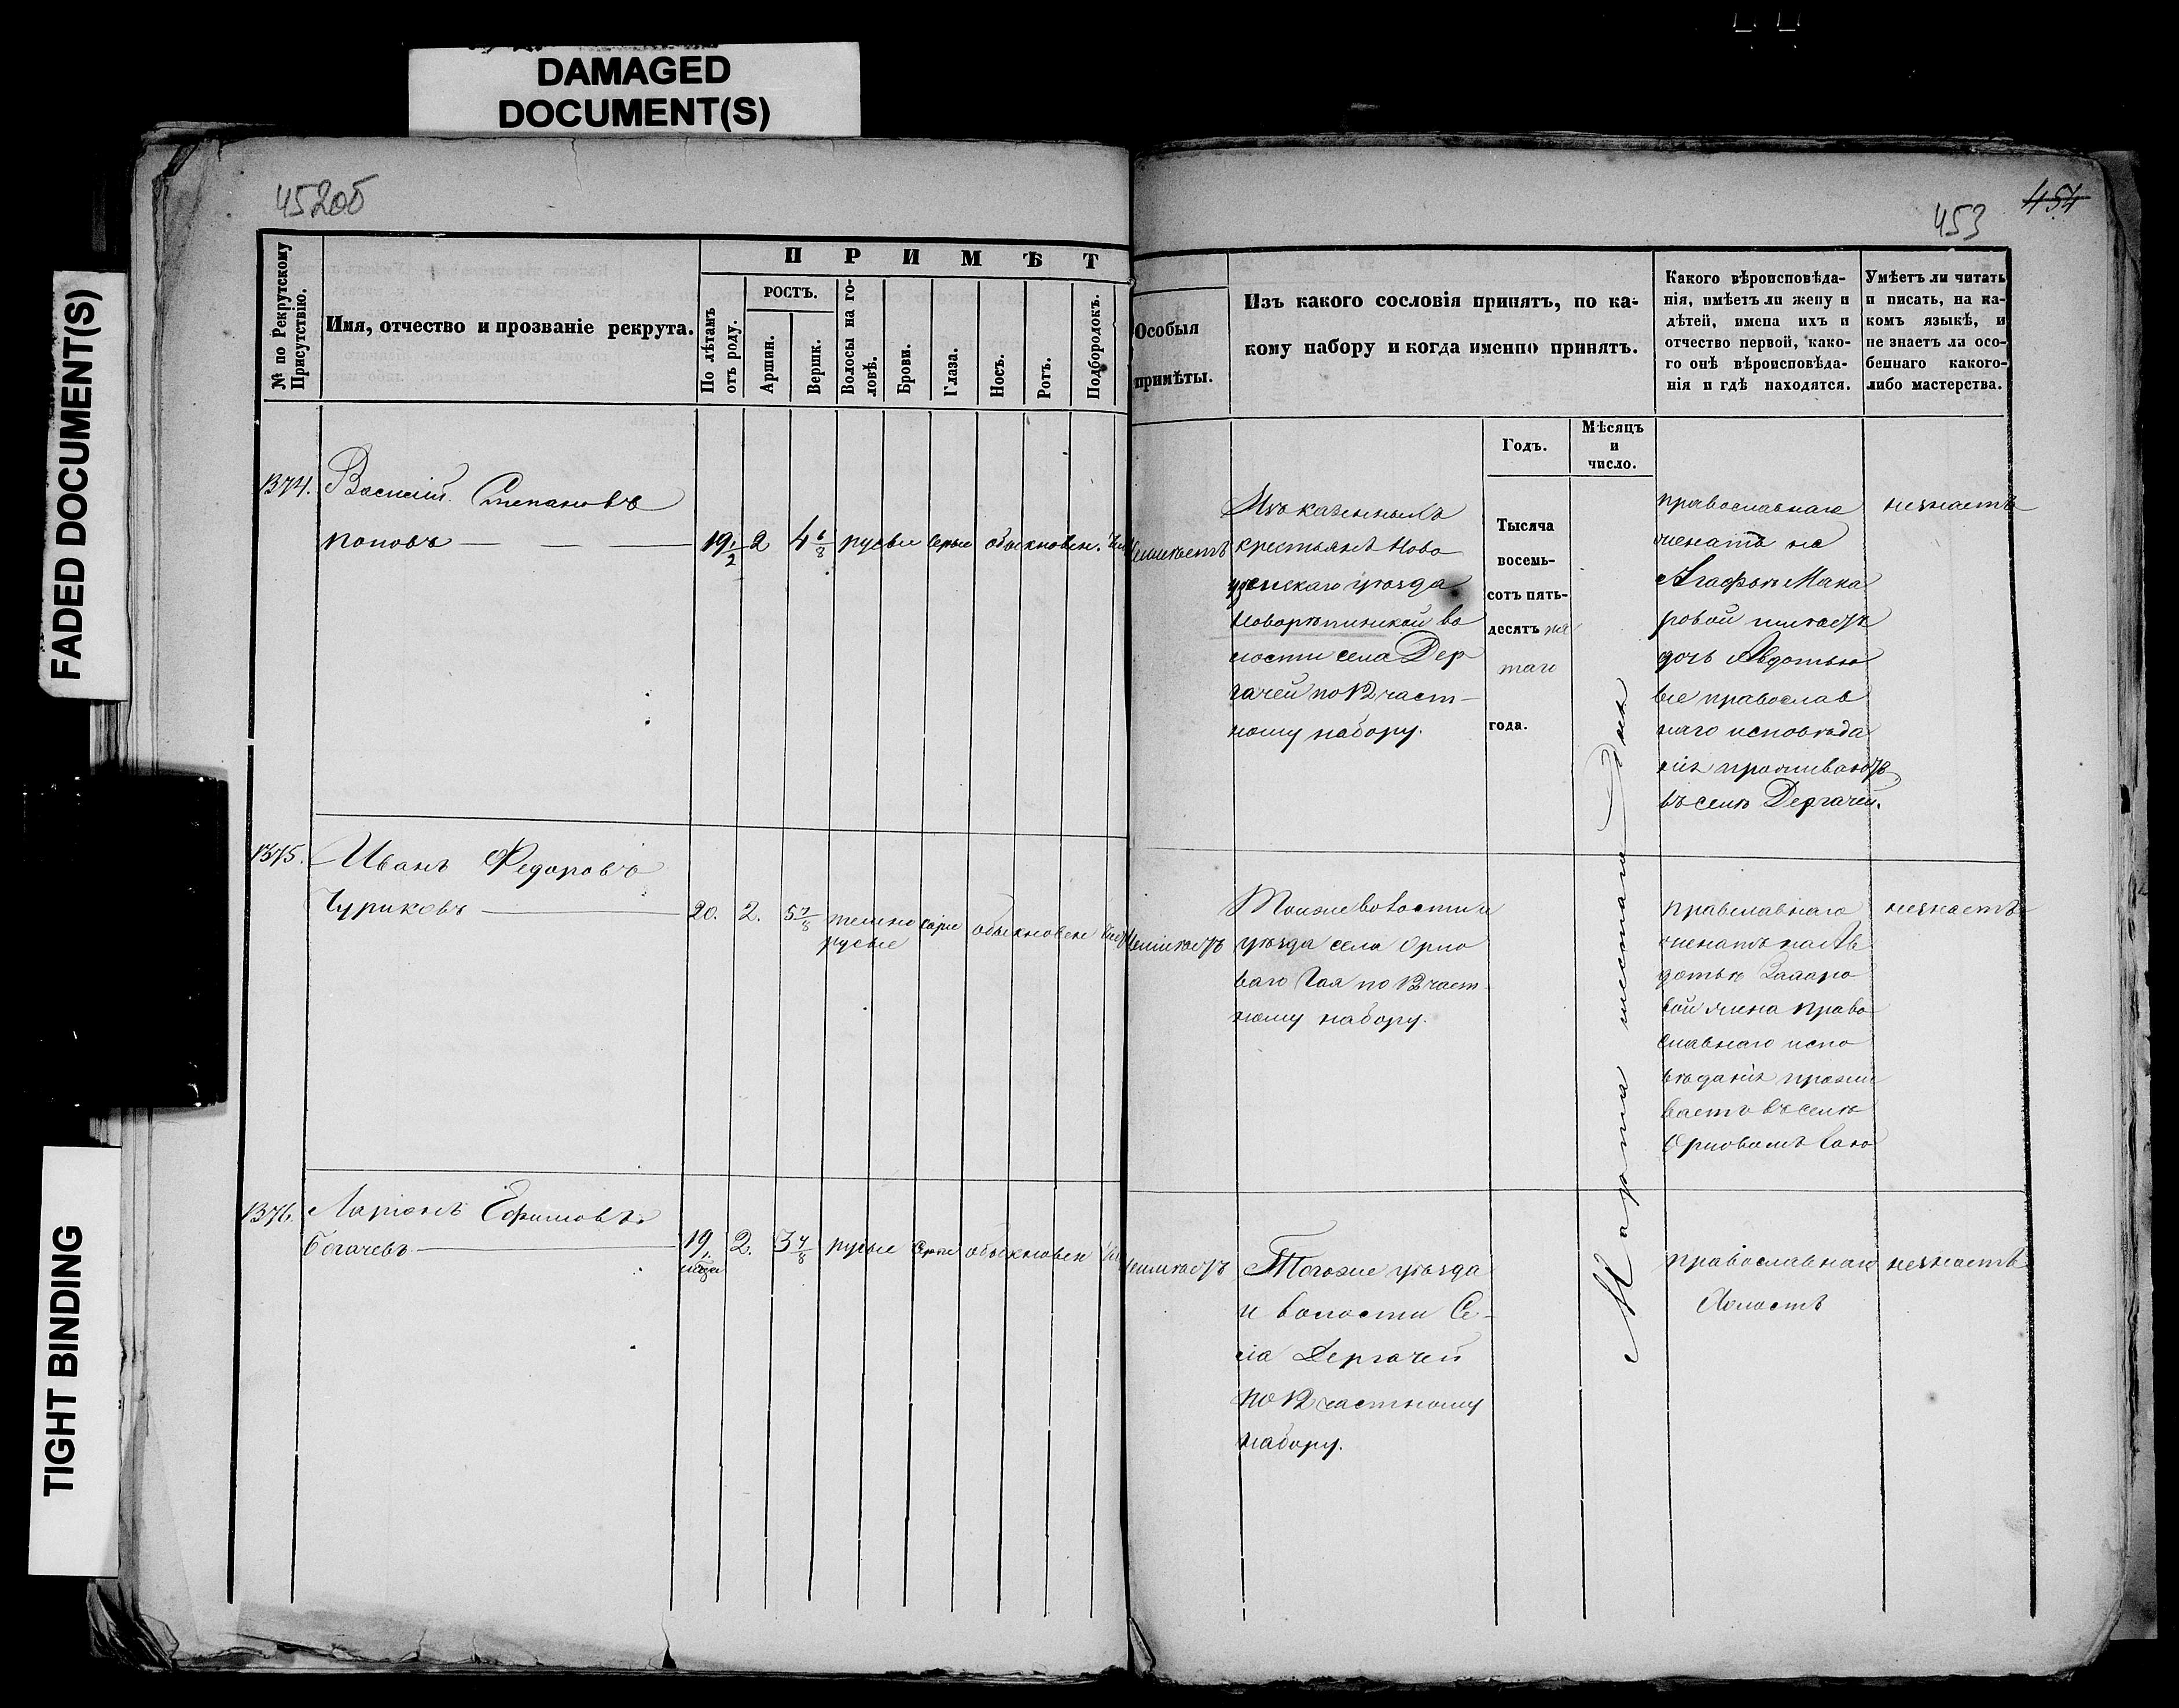 DAMAGED
DOCUMENT(S)
FADED DOCUMENT(S)
TIGHT BINDING
452об
453
454
№ по Рекрутскому
Присутствію.
Имя, отчество и прозваніе рекрута.
ПРИМѢТ
По лѣтамъ
отъ роду.
РОСТЪ.
Аршин.
Вершк.
Волосы на го-
ловѣ.
Брови.
Глаза.
Носъ.
Ротъ.
Подбородокъ.
Особыя
примѣты.
Изъ какого сословія принятъ, по ка-
кому набору и когда именно принятъ.
Какого вѣроисповѣда-
нія, имѣетъ ли жену и
дѣтей, имена ихъ и
отчество первой, како-
го онѣ вѣроисповѣда-
нія и гдѣ находятся.
Умѣетъ ли читать
и писать, на ка-
комъ языкѣ, и
не знаетъ ли осо-
беннаго какого-
либо мастерства.
Годъ.
Мѣсяцъ
и
число.
1374.
Василій Степановъ
Поповъ
19 1/2
2
4 6/8
русые
серые
обыкновен.
неимѣетъ
Изъ казенныхъ
крестьянъ Ново
узенскаго уѣзда
Новорѣпинской во
лости села Дер
гачей по 12 част-
ному набору.
Тысяча
восемь-
сотъ пять-
десятъ пя
таго
года.
Марта шестаго дня
православнаго
женатъ на
Агафьѣ Мака
ровой имѣетъ
дочь Авдотью
все православ
наго исповѣда
нія проживаютъ
въ селѣ Дергачей.
незнаетъ
1375.
Иванъ Федоровъ
Чуриковъ
20.
2.
5 7/8
темно
русые
карие
обыкновен
неимѣетъ
Тойже волости и
уѣзда села Орло
ваго Гая по 12 част
ному набору.
Православнаго
женатъ на Ав
дотьѣ Захаро
вой жина право
славнаго испо
вѣданія прожи
ваетъ въ селѣ
Орловомъ Гаю
незнаетъ
1376.
Ларіонъ Ефимовъ
Богачевъ
19
2.
3 7/8
русые
серые
обыкновен
неимѣетъ
Тогоже уѣзда
и волости Се-
ла Дергачей
по 12 частному
набору.
православнаго
Холостъ
незнаетъ